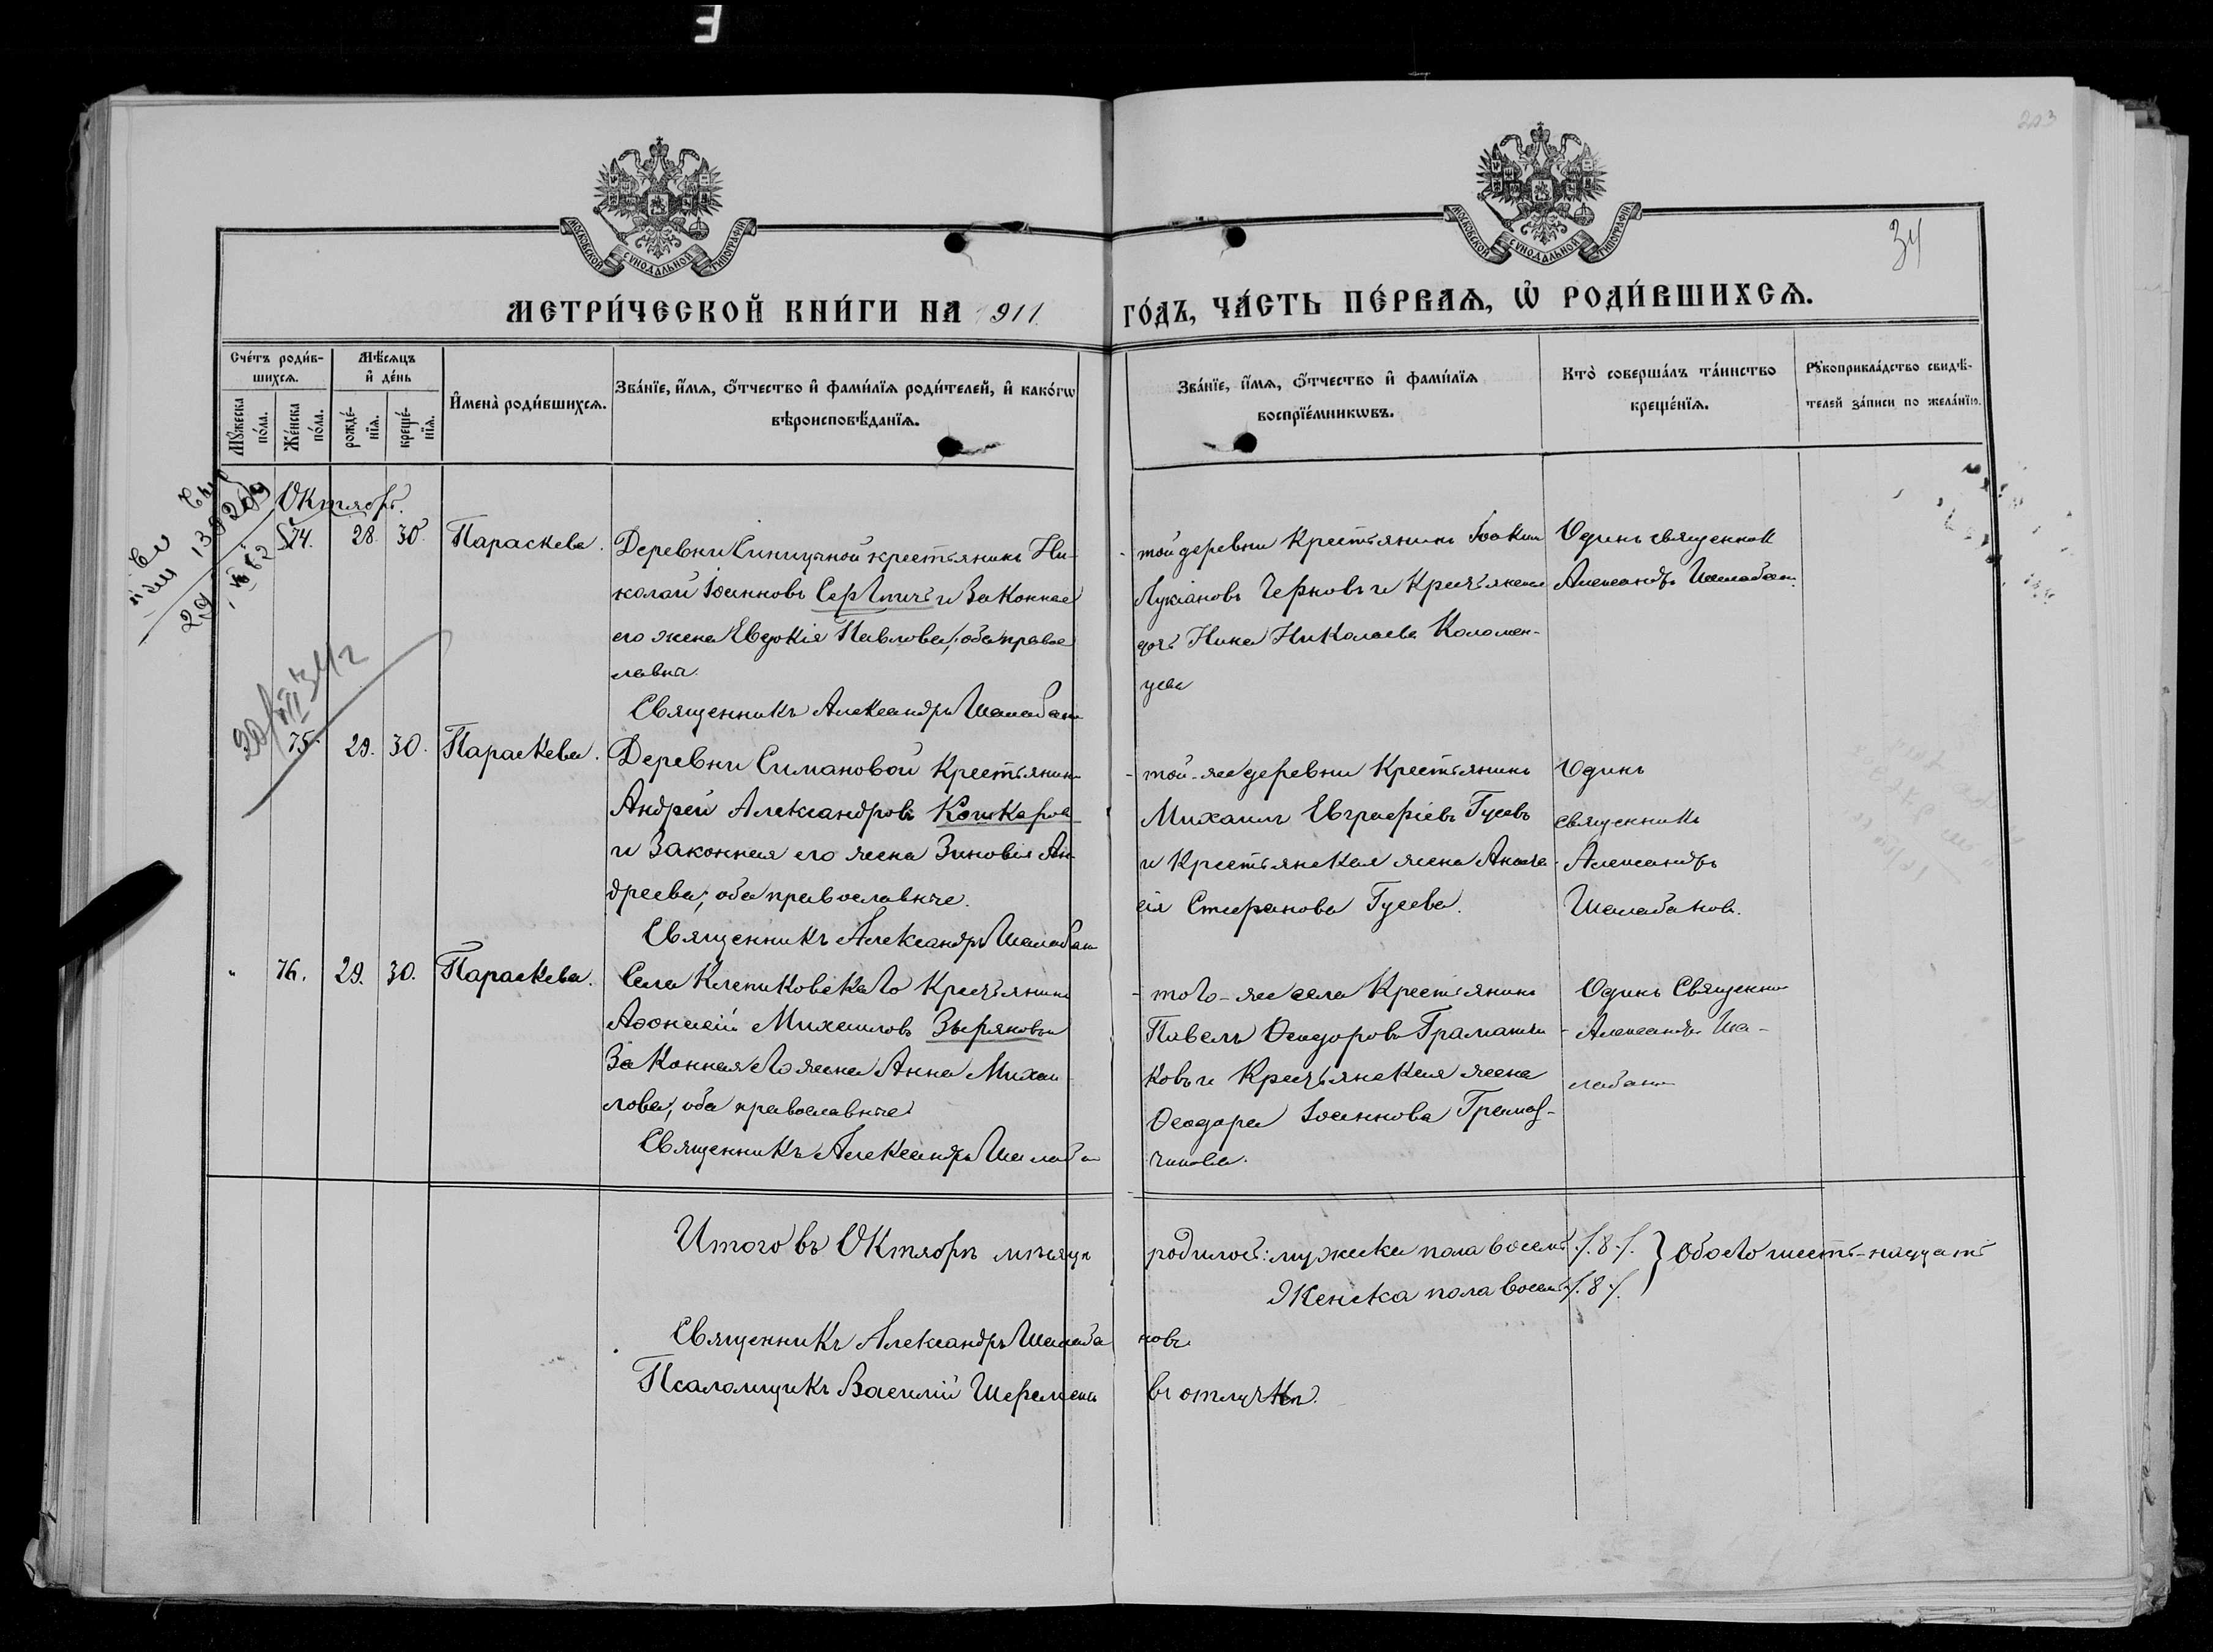 203
МОСКОВСКОЙ СѴНОДАЛЬНОЙ ТИПОГРАФІИ
МОСКОВСКОЙ СѴНОДАЛЬНОЙ ТИПОГРАФІИ
34
МЕТРИ́ЧЕСКОЙ КНИ́ГИ НА 911. ГО́ДЪ, ЧА́СТЬ ПЕ́РВАѦ, Ѡ РОДИ́ВШИХСѦ.
Сче́тъ роди́в-
шихсѧ.
Мꙋ́жеска по́ла.
Же́нска по́ла.
Мѣ́сѧцъ
и де́нь
рожде́-нїѧ.
креще́-нїѧ.
И҆мена̀ роди́вшихсѧ.
Зва́нїе, и҆́мѧ, ѻ҆́тчество и҆ фами́лїѧ роди́телей, и҆ како́гѡ
вѣроисповѣ́данїѧ.
Зва́нїе, и҆́мѧ, ѻ҆́тчество и҆ фами́лїѧ
воспрїе́мникѡвъ.
Кто̀ соверша́лъ та́инство
креще́нїѧ.
Рꙋкоприкла́дство свидѣ́-
телей за́писи по жела́нїю.
Октябрь.
74. 28. 30. Параскева.
Деревни Синицыной крестьянинъ Ни-
колай Іоанновъ и законная
его жена Евдокія Павлова, оба право
славны.
Священникъ Александръ Шалабан
той деревни крестьянинъ Іоаким
Лукіановъ Черновъ и крестьянская
дочь Нина Николаева Коломен-
цева
Одинъ священник
Александръ Шалабан
75. 29. 30. Параскева.
Деревни Симановой крестьянин
Андрей Александровъ Кошкаров
и законная его жена Зиновія Ан
дреева, оба православные.
Священникъ Александръ Шалабан
той-же деревни крестьянинъ
Михаилъ Евграфіевъ Гусевъ
и крестьянская жена Анаста
сія Стефанова Гусева.
Одинъ
священникъ
Александръ
Шалабановъ.
" 76. 29. 30. Параскева.
Села Клепиковскаго крестьянинъ
Афонасій Михаиловъ Зыряновъ и
законная его жена Анна Михаи
лова, оба православные
Священникъ Александръ Шалаба
того-же села крестьянинъ
Павелъ Ѳеодоровъ Граматчи
ковъ и крестьянская жена
Ѳеодора Іоаннова Грамат-
чикова.
Одинъ Священник
Александръ Ша-
лабан
Итого въ Октябрѣ мѣсяцѣ родилось: мужска пола восемь /.8./. } обоего шесть-надцать
Женска пола восемь /.8./.
Священникъ Александръ Шалабановъ
Псаломщикъ Василій въ отлучкѣ.